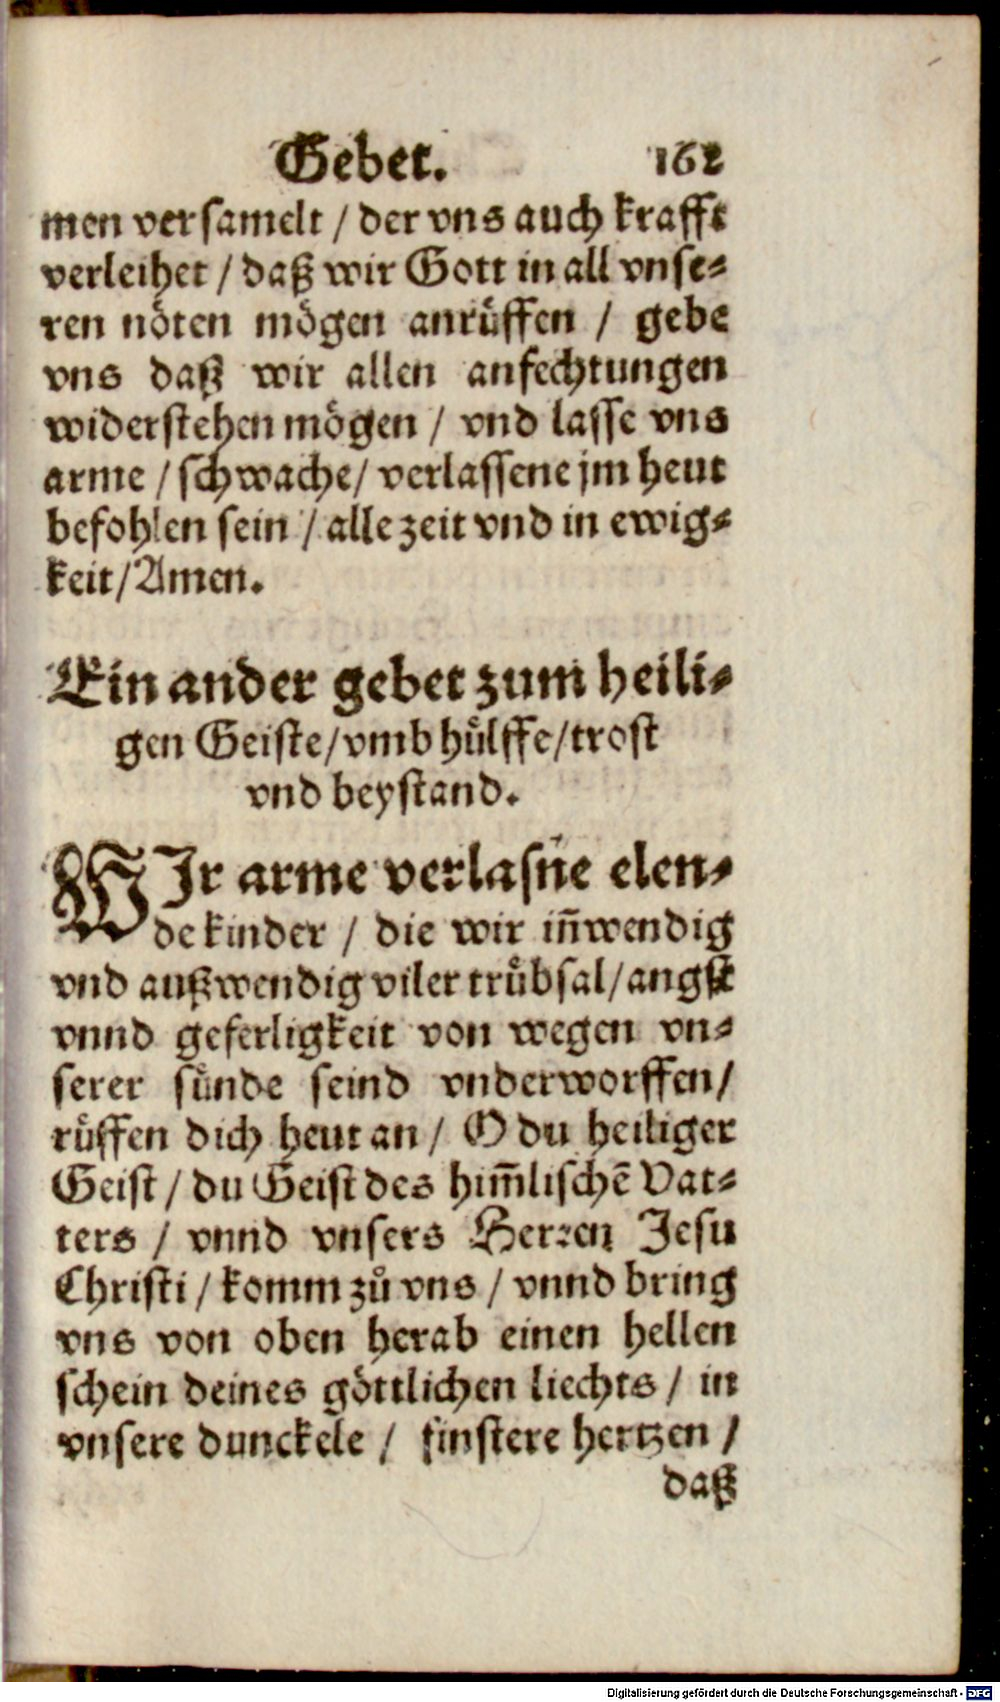 Gebet. 162
men versamelt / der vns auch krafft
verleihet / daß wir Gott in all vnse-
ren nöten mögen anrüffen / gebe
vns daß wir allen anfechtungen
widerstehen mögen / vnd lasse vns
arme / schwache / verlassene jm heut
befohlen sein / alle zeit vnd in ewig-
keit / Amen.
Ein ander gebet zum heili-
gen Geiste / vmb hülffe / trost
vnd beystand.
WIr arme verlasne elen-
de kinder / die wir iñwendig
vnd außwendig viler trübsal / angst
vnnd geferligkeit von wegen vn-
serer sünde seind vnderworffen /
rüffen dich heut an / O du heiliger
Geist / du Geist des him̃lischẽ Vat-
ters / vnnd vnsers Herren Jesu
Christi / komm zů vns / vnnd bring
vns von oben herab einen hellen
schein deines göttlichen liechts / in
vnsere dunckele / finstere hertzen /
daß
Digitalisierung gefördert durch die Deutsche Forschungsgemeinschaft - DFG